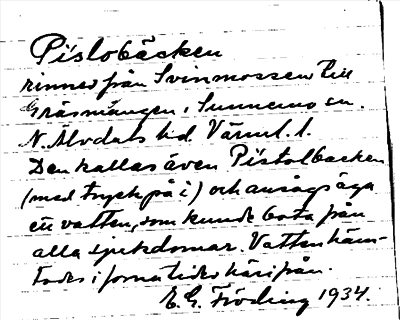 Píslobäcken
rinner från Svinmossen till
Gräsmången i Sunnemo sn.
N. Älvdals hd. Värml. l.
Den kallas även Pístolbacken
(med tryck på i) och ansågs äga
ett vatten, som kunde bota från
alla sjukdomar. Vatten häm-
tades i forna tider härifrån.
E. G. Fröding 1934.